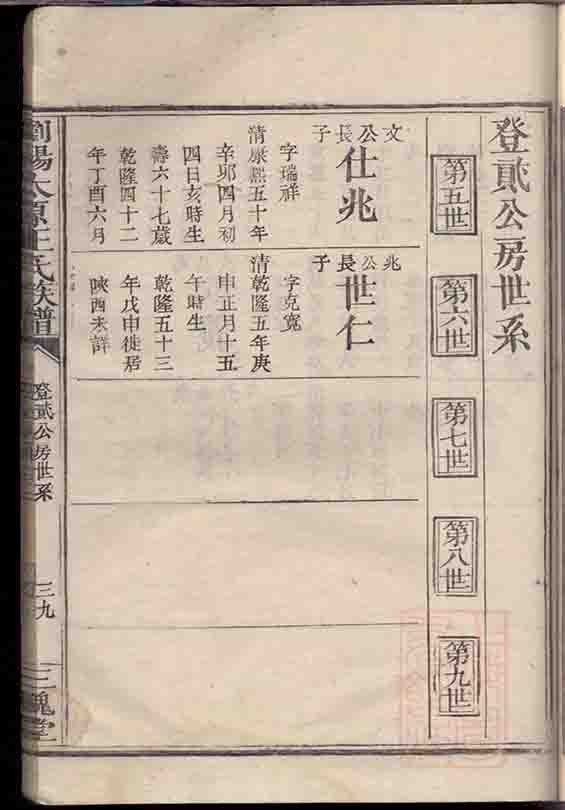 登貳公房世系
第五世
第六世
第七世
第八世
第九世
文公長子
仕兆
字瑞祥
清康熙五十年
辛卯四月初
四日亥時生
壽六十七歲
乾隆四十二
年丁酉六月
兆公長子
世仁
字克寬
清乾隆五年庚
申正月十五
午時生
乾隆五十三
年戊申徙居
陝西未詳
瀏陽太原王氏族譜
登貳公房世系
三九
三槐堂